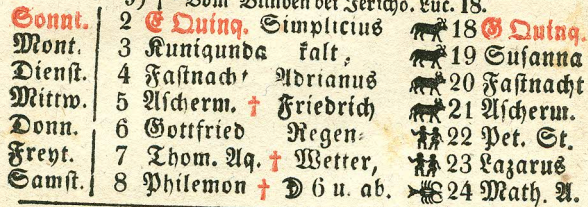 Vom Blinden bei Jericho. Luc. 18.
Sonnt. 2 E Quinq. Simplicius 18 G Quinq.
Mont. 3 Kunigunda kalt, 19 Susanna
Dienst. 4 Fastnacht Adrianus 20 Fastnacht
Mittw. 5 Ascherm. † Friedrich 21 Ascherm.
Donn. 6 Gottfried Regen- 22 Pet. St.
Freyt. 7 Thom. Aq. † Wetter, 23 Lazarus
Samst. 8 Philemon † 6 u. ab. 24 Math. A.